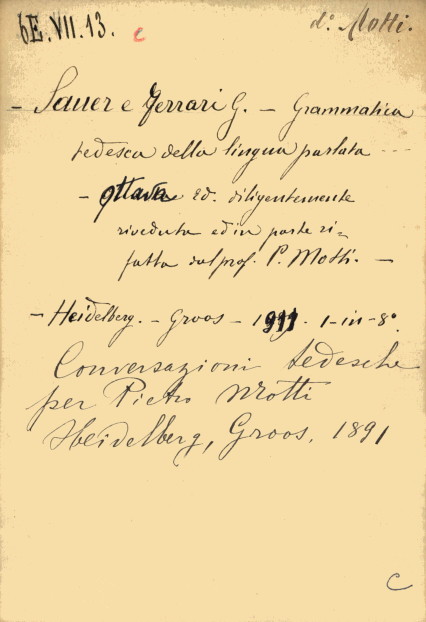 6E.VII.13. c
d.' Motti.
– Sauer e Ferrari G. – Grammatica
tedesca della lingua parlata ...
– ottava ed. diligentemente
riveduta ed in parte ri-
fatta dal prof. P. Motti. –
– Heidelberg. – Groos – 1-in-8°.
Conversazioni tedesche
per Pietro Motti
Heidelberg, Groos, 1891
C